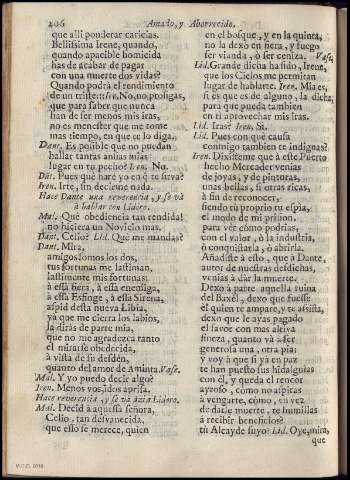 206 Amado, y Aborrecido.
que alli ponderar caricias.
Bellissima Irene, quando,
quando apacible homicida
has de acabar de pagar
con una muerte dos vidas?
Quando podrà el rendimiento
de un triste Iren. No, no prosigas,
que para saber que nunca
han de ser menos mis iras,
no es menester que me tome
mas tiempo, en que tu lo diga.
Dant. Es posible que no puedan
hallar tantas ansias mias
lugar en tu pecho? Iren. No.
Dãt. Pues què harè yo en q̃ te sirva?
Iren. Irte, sin decirme nada.
Hace Dante una reverencia, y se và
à hablar con Lidoro.
Mal. Què obediencia tan rendida!
no hiciera un Novicio mas.
Dant. Celio? Lid. Què me mandas?
Dant. Mira,
amigos somos los dos,
tus fortunas me lastiman,
lastimente mis fortunas:
à essa fiera, à essa enemiga,
à essa Esfinge, à essa Sirena,
aspid desta nueva Libia,
yà que me cierra los labios,
la diràs de parte mia,
que no me agradezca tanto
el mirarse obedecida,
à vista de su desdèn,
quanto del amor de Aminta. Vase.
Mal. Y yo puedo decir algo?
Iren. Menos vos: idos aprisa.
Hace reverencia, y se và àzia Lidoro.
Mal. Decid à aquessa señora,
Celio, tan desvanecida,
que esso se merece, quien
en el bosque, y en la quinta,
no la dexò en fiera, y fuego
ser vianda, ò ser ceniza. Vase.
Lid. Grande dicha ha sido, Irene,
que los Cielos me permitan
lugar de hablarte. Iren. Mia es,
si es que es de alguno, la dicha,
para que pueda tambien
en ti aprovechar mis iras.
Lid. Iras? Iren. Si.
Lid. Pues con què causa
conmigo tambien te indignas?
Iren. Dixisteme que à este Puerto
hecho Mercader venias
de joyas, y de pinturas,
unas bellas, si otras ricas,
à fin de reconocer,
siendo tu proprio tu espia,
el modo de mi prision,
para vèr còmo podrias,
con el valor, ò la industria,
ò conquistarla, ò abrirla.
Añadiste à esto, que à Dante,
autor de nuestras desdichas,
venias à dàr la muerte.
Dexo à parte aquella ruina
del Baxèl, dexo que fuesse
èl quien te ampare, y te assista,
dexo que le ayas pagado
el favor con mas altiva
fineza, quanto và à ser
generosa una, otra pia;
y voy à que si yà en paz
te han puesto sus hidalguias
con èl, y queda el rencor
ayroso, còmo no aspiras
à vengarte, còmo, en vez
de darle muerte, te humillas
à recibir beneficios?
tu Alcayde suyo? Lid. Oye, mira,
que